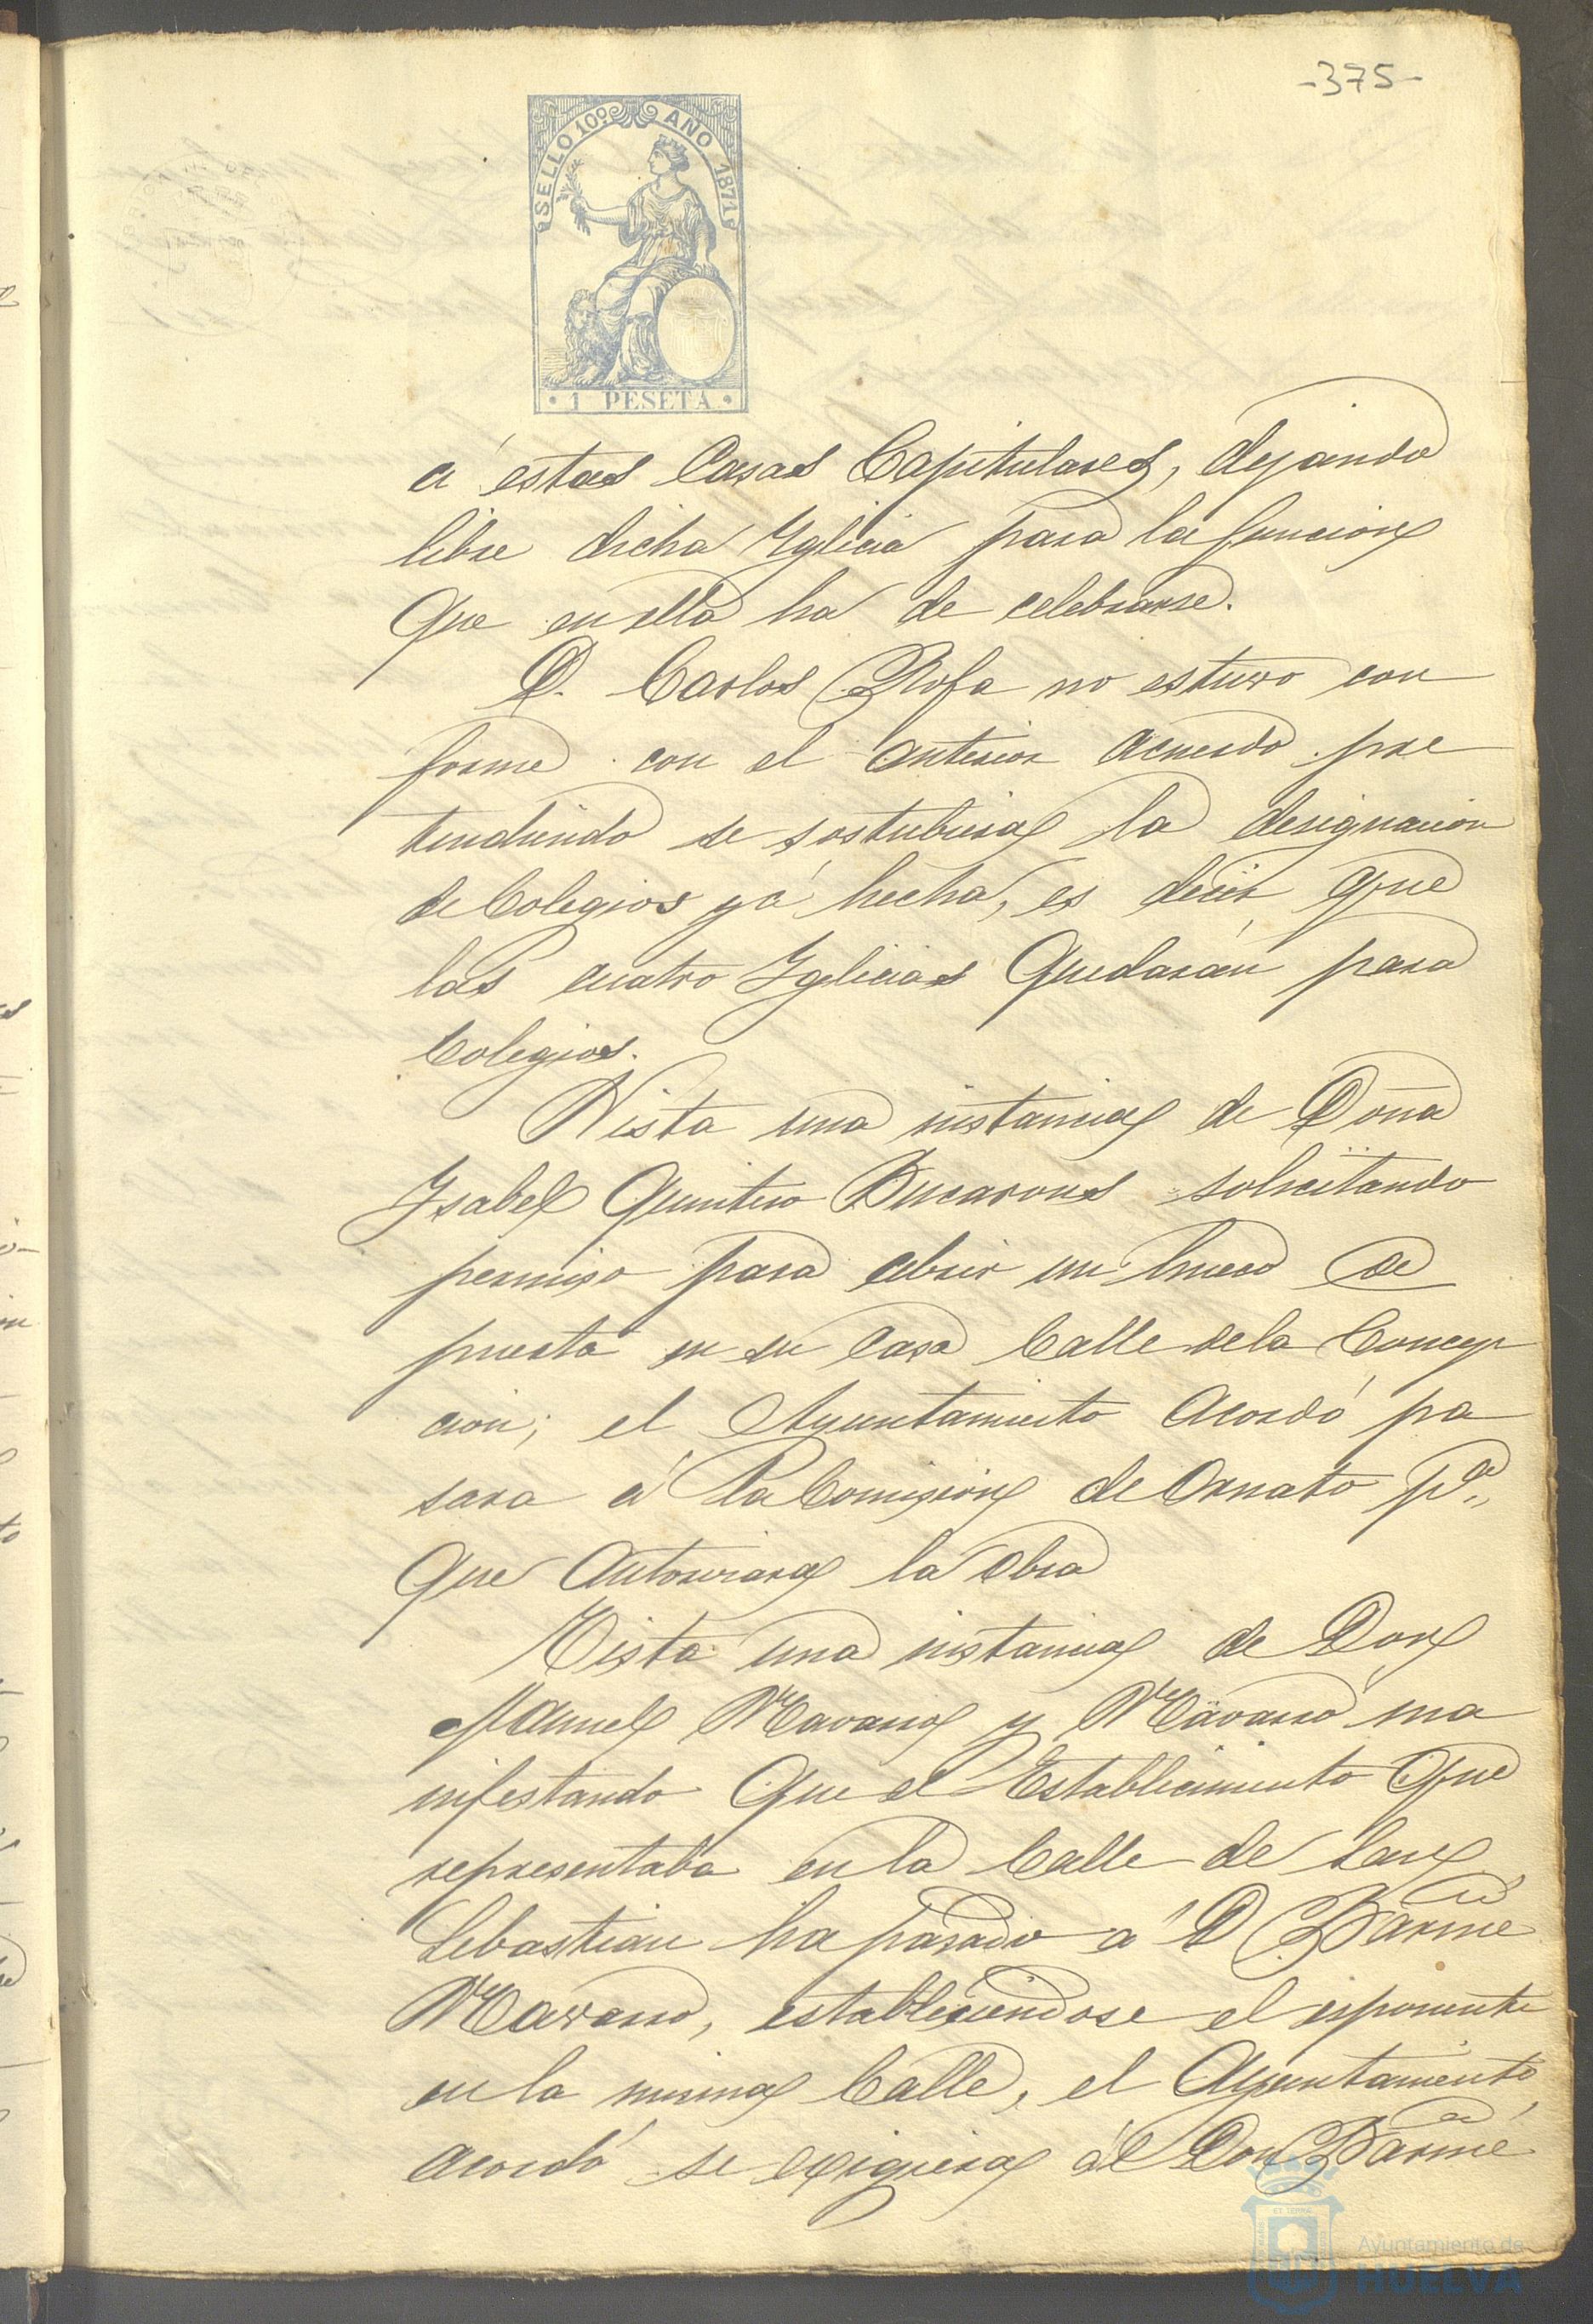 -375-
SELLO 10º AÑO 1871
1 PESETA
á estas Casas Capitulares, dejando
libre dicha Yglicia para la funcion
Que en ella ha de celebrarse.
D. Carlos Rofa no estuvo con
forme con el anterior acuerdo pre
tendiendo se sostubiera la designacion
de Colegios yá hecha, es decir que
las cuatro Yglicias Quedarán para
Colegios.
Vista una instancia de Doña
Ysabel Quintero solicitando
permiso para abrir un hueco de
puerta en su casa Calle de la Concep
cion; el Ayuntamiento Acordó pa
sara á la Comision de Ornato pª
Que Autorizara la obra
Vista una instancia de Don
Manuel Navarro y Navarro ma
nifestando Que el Establecimiento Que
representaba en la Calle de San
Sebastian ha pasado a D Barme
Navarro, estableciendose el esponente
en la misma Calle, el Ayuntamiento
acordó se exigiera al Don Barmé
Ayuntamiento de
HUELVA